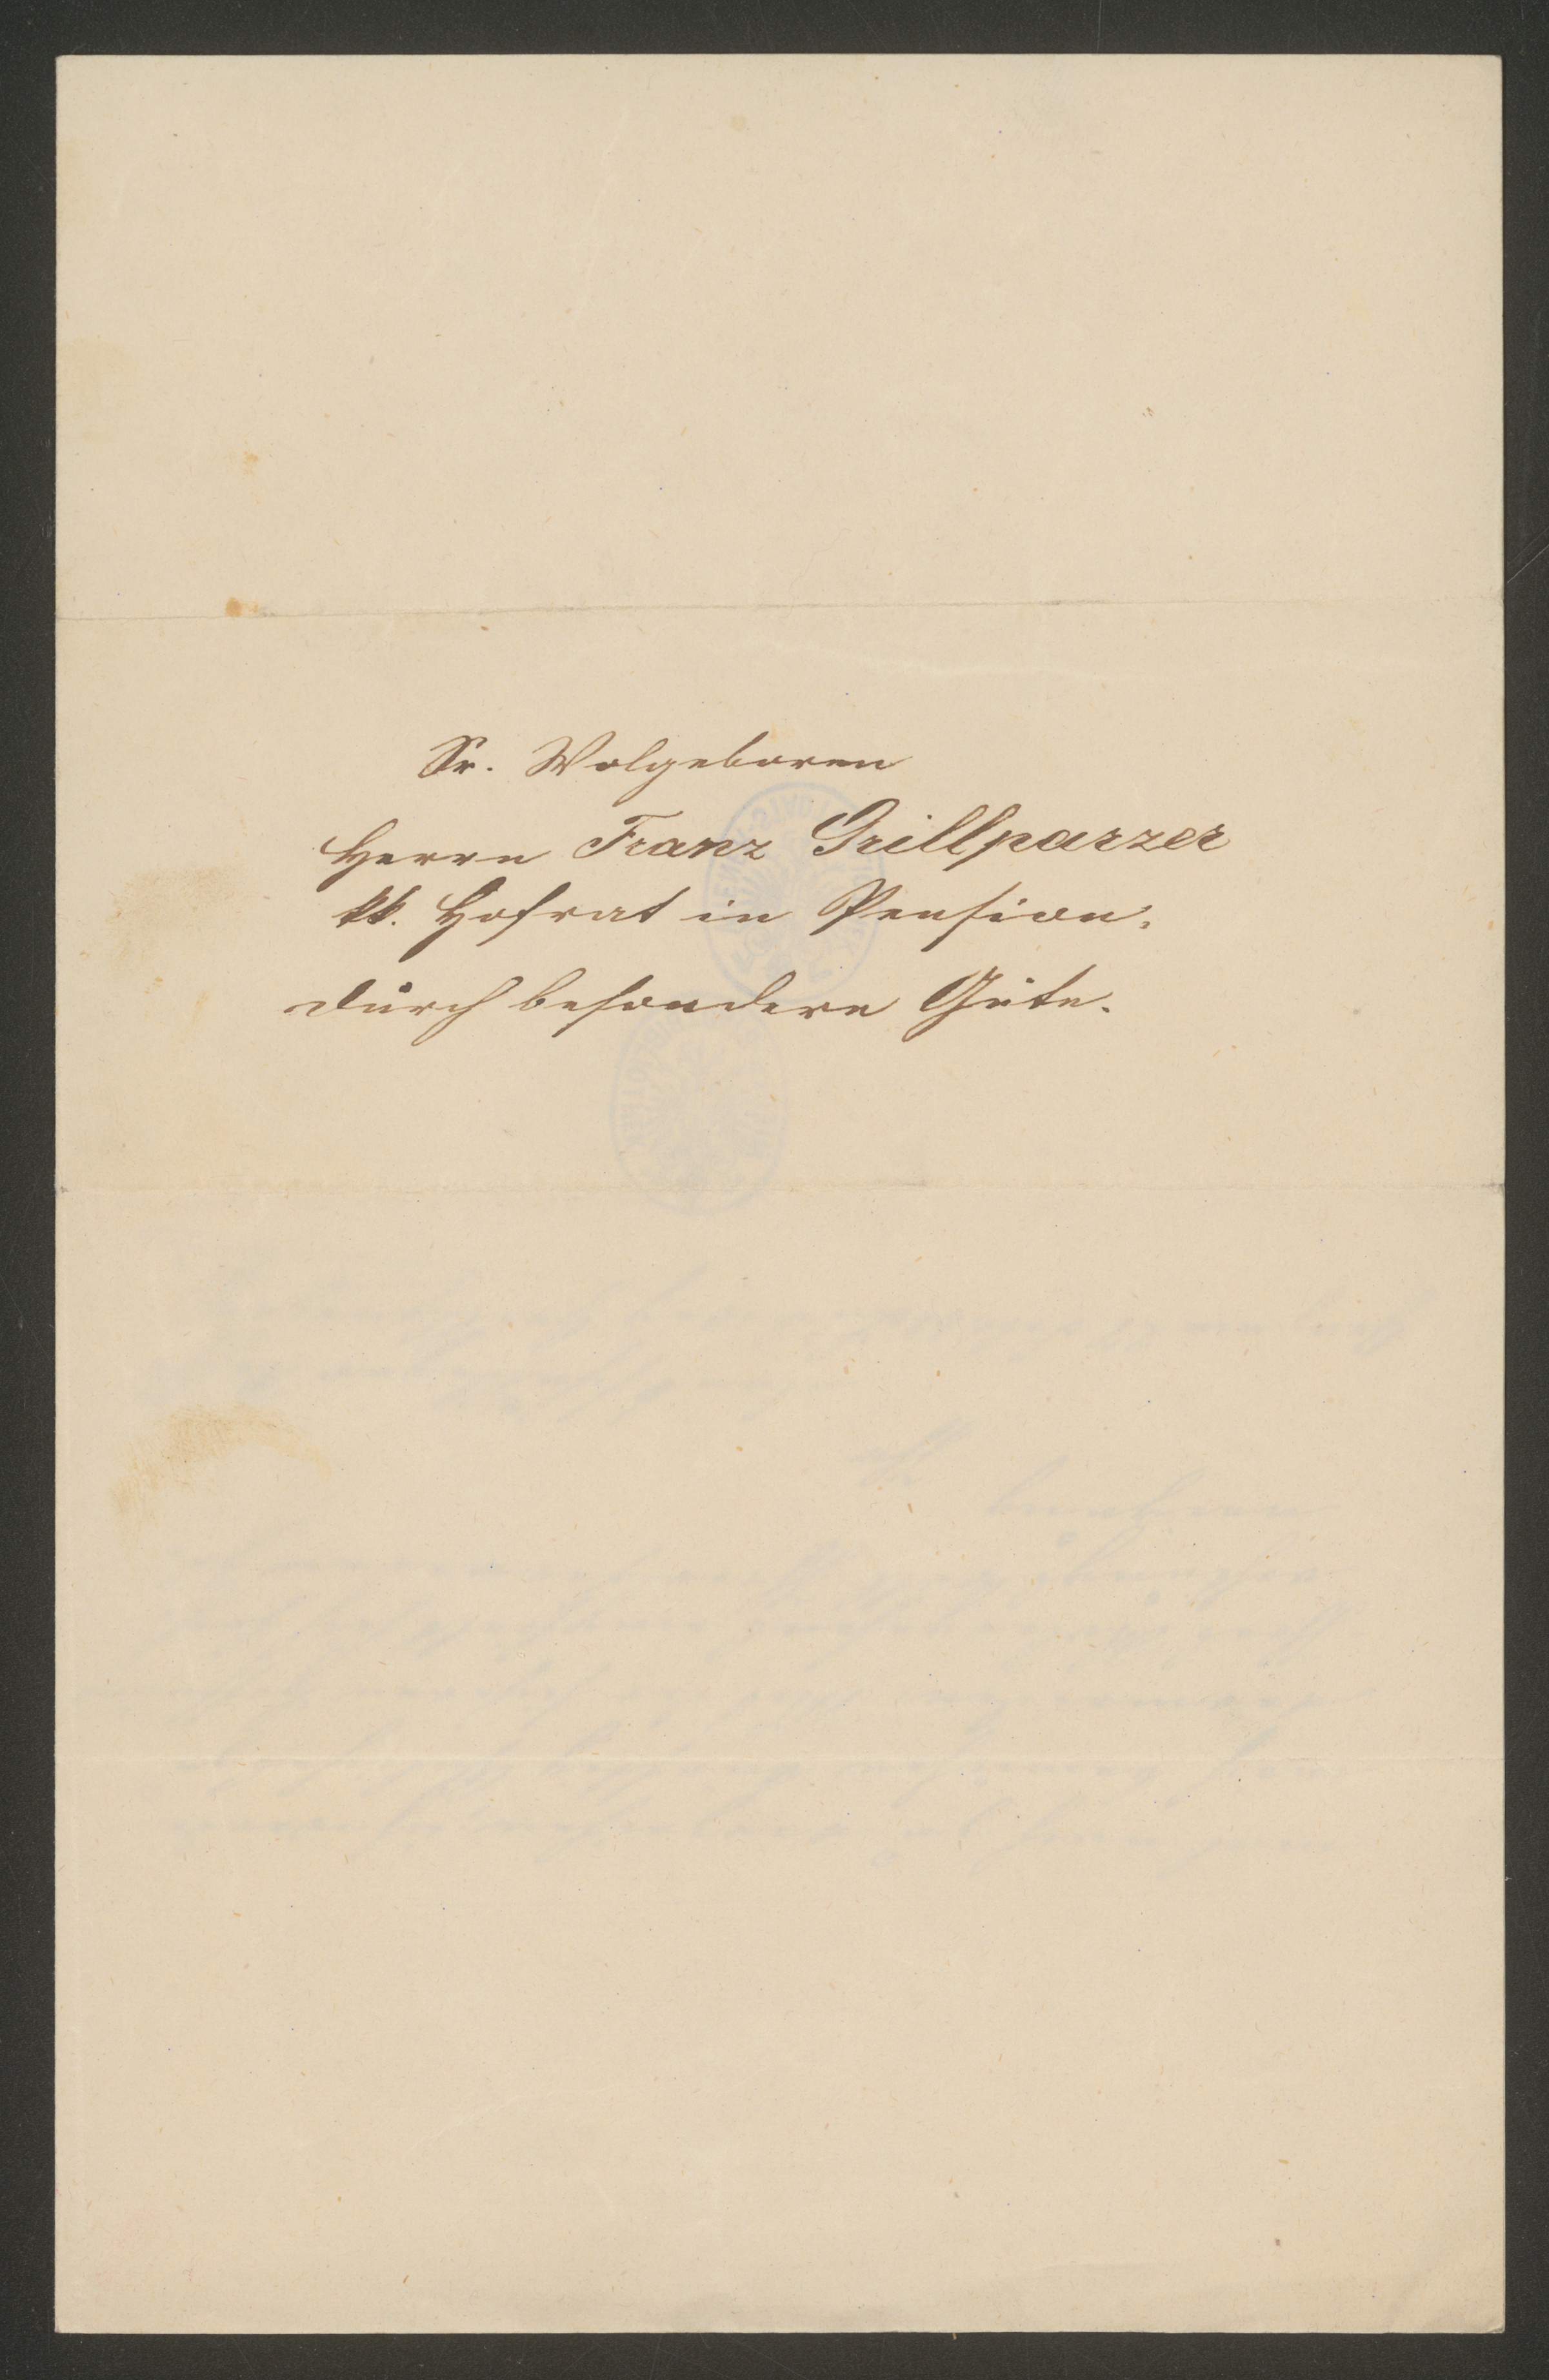 Sr. Wolgeboren
Herrn Franz Grillparzer
kk. Hofrat in Pension.
durch besondere Güte.